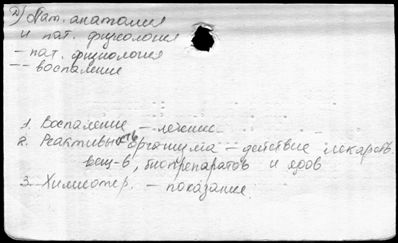 2) Пат. анатомия
и пат. физиология
– пат. физиология
–– воспаление
1. Воспаление – лечение
2. Реактивность организма – действие лекарств.
вещ-в, биопрепаратов и ядов
3. Химиотер. – показание.